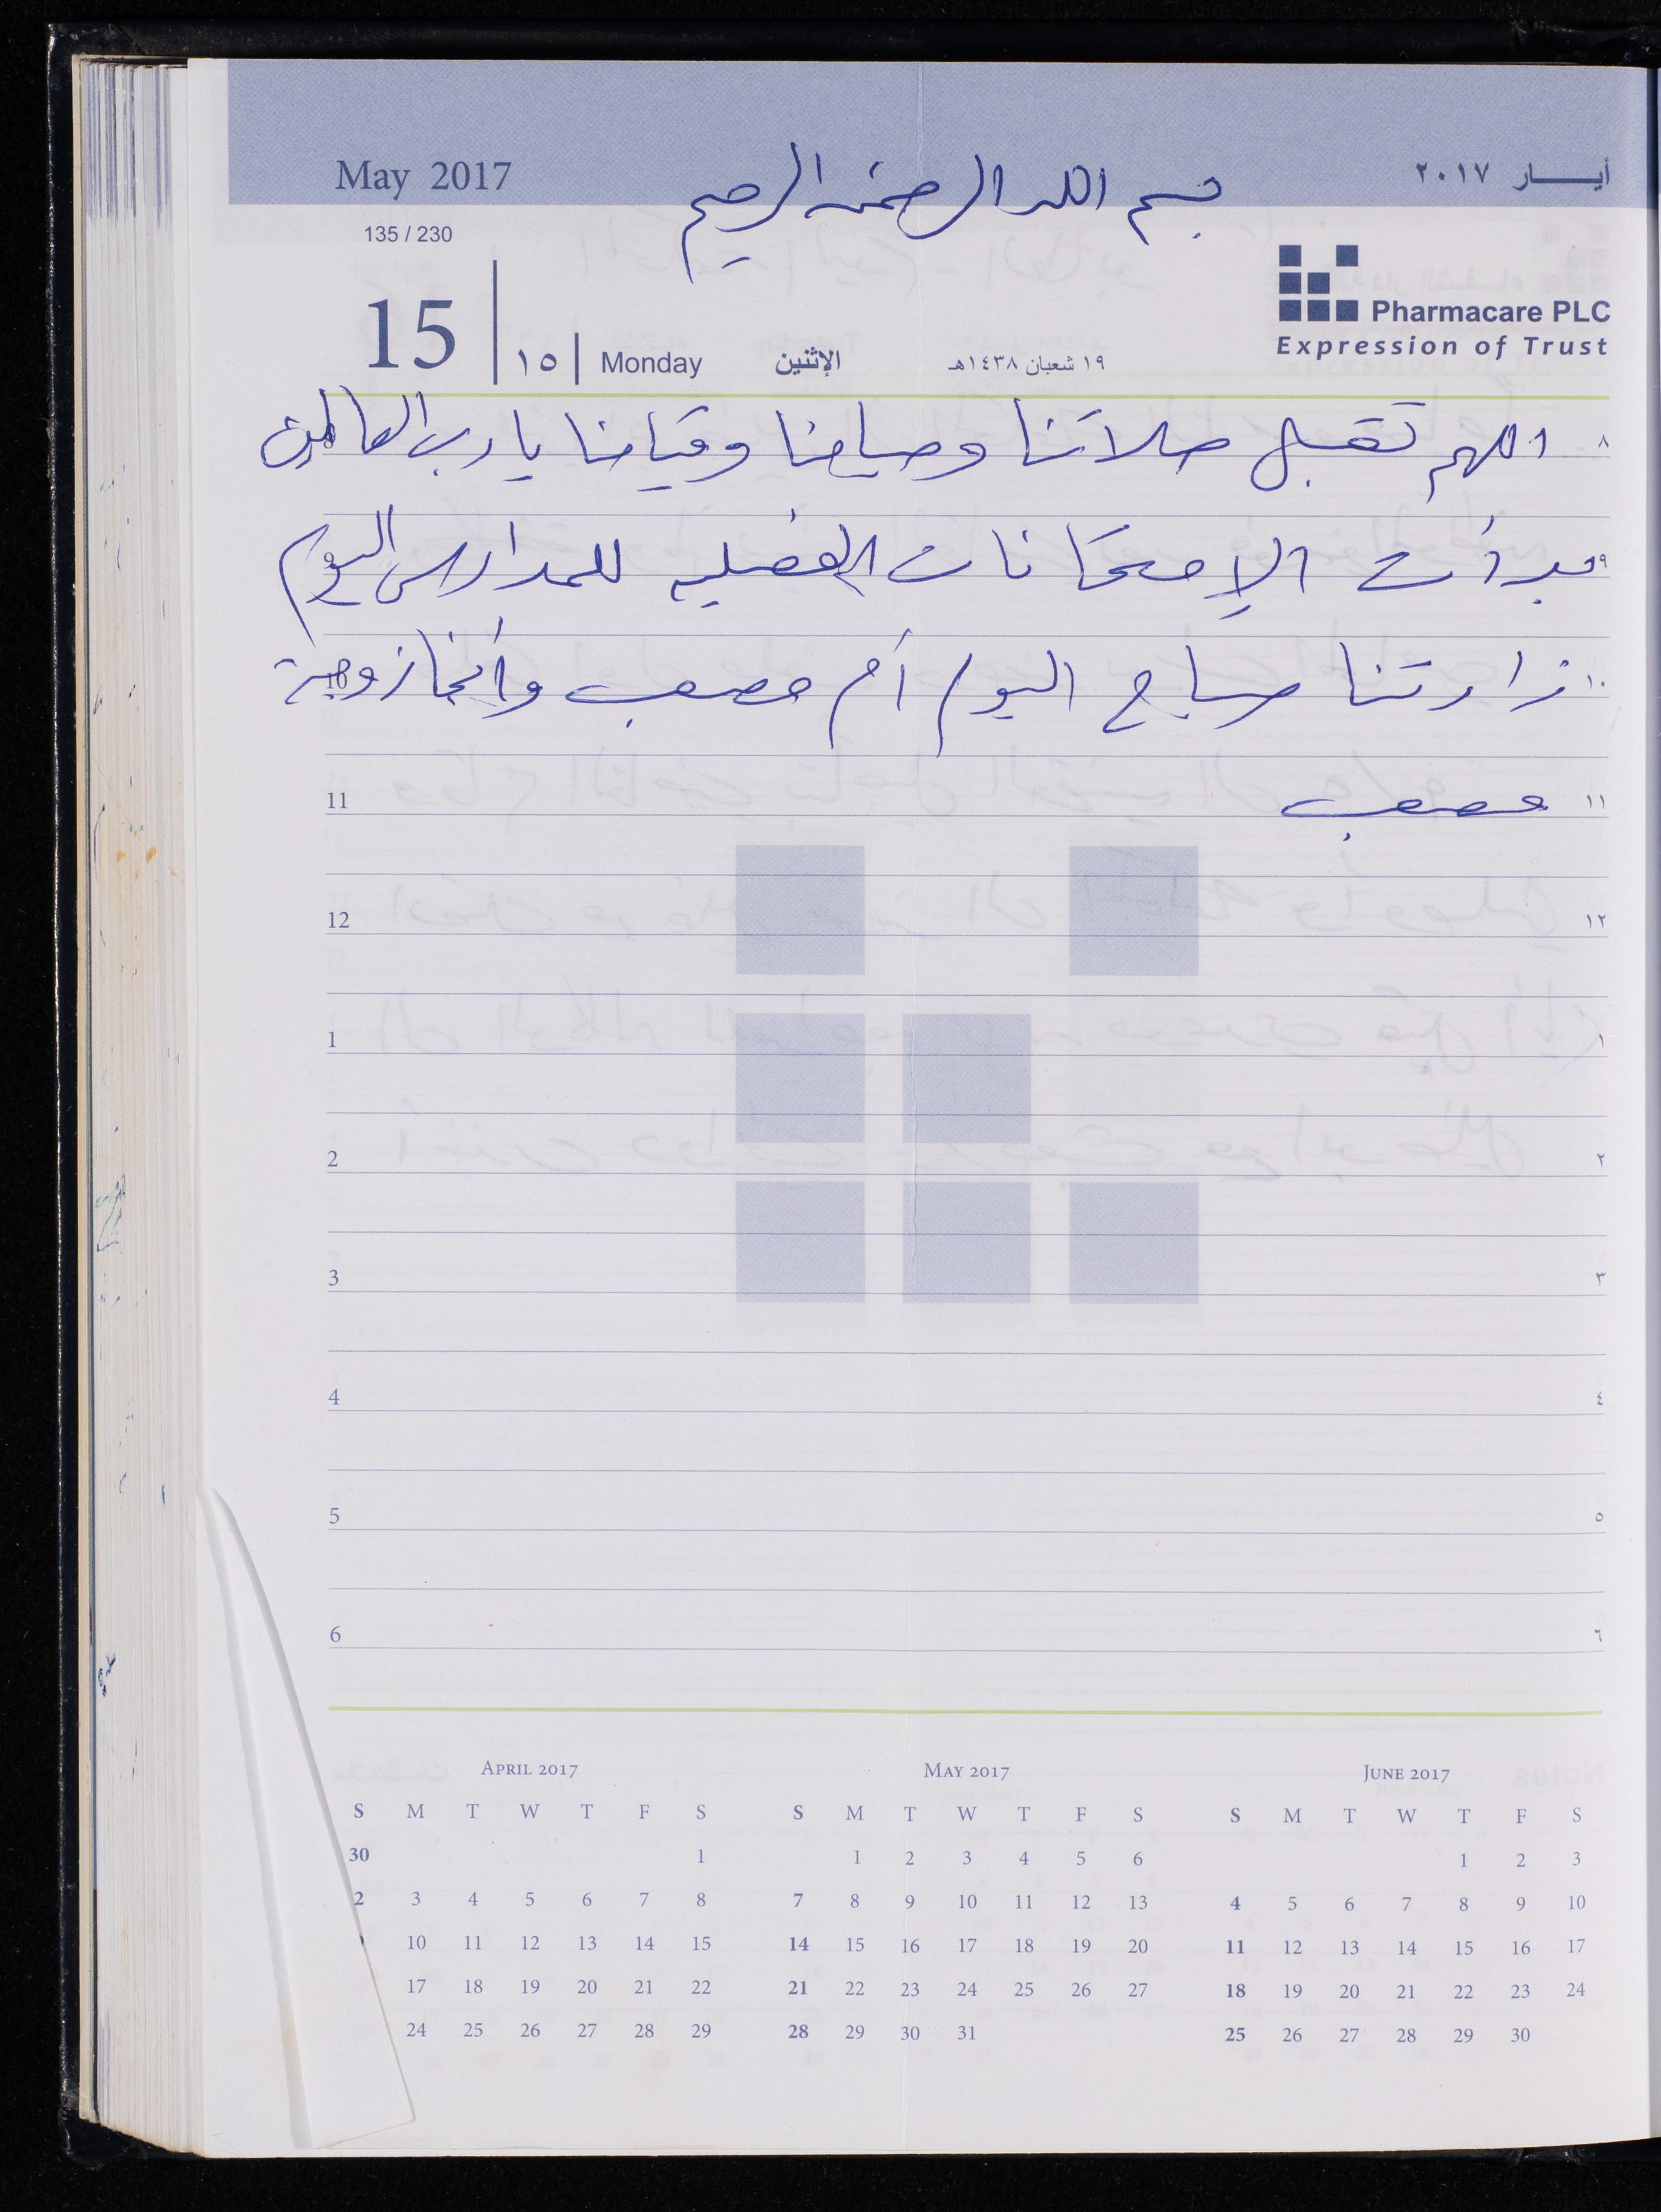 May 2017 بسم الله الرحمن الرحيم أيـــار ٢٠١٧
135 / 230
Pharmacare PLC
Expression of Trust
15 | ١٥ | Monday الإثنين ١٩ شعبان ١٤٣٨هـ
اللهم تقبل صلاتنا وصيامنا وقيامنا يا رب العالمين ٨
بدأت الإمتحانات الفصليه للمدارس اليوم ٩
زارتنا صباح اليوم أم مصعب وأنغاز وجهة ١٠
11 مصعب ١١
12 ١٢
1 ١
2 ٢
3 ٣
4 ٤
5 ٥
6 ٦
APRIL 2017 MAY 2017 JUNE 2017
S M T W T F S S M T W T F S S M T W T F S
30 1 1 2 3 4 5 6 1 2 3
2 3 4 5 6 7 8 7 8 9 10 11 12 13 4 5 6 7 8 9 10
10 11 12 13 14 15 14 15 16 17 18 19 20 11 12 13 14 15 16 17
17 18 19 20 21 22 21 22 23 24 25 26 27 18 19 20 21 22 23 24
24 25 26 27 28 29 28 29 30 31 25 26 27 28 29 30